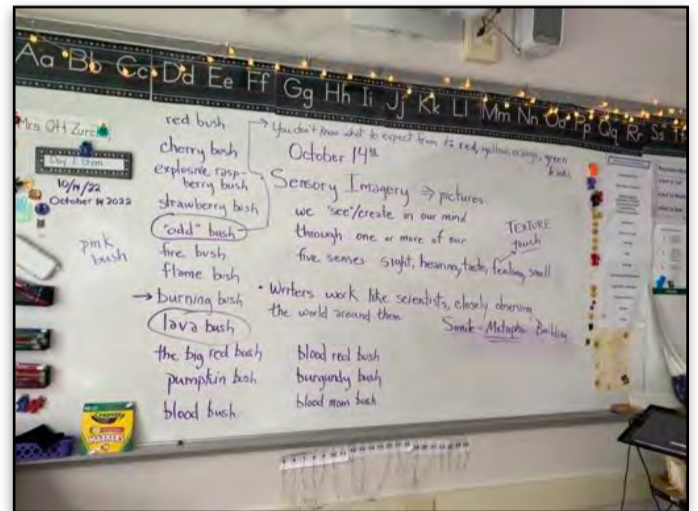 Aa Bb Cc Dd Ee Ff Gg Hh Ii Jj Kk Ll Mm Nn Oo Pp Qq Rr Ss
Mrs Ott Zurc
Day 1 Gym
10/14/22
October 14 2022
pink bush
red bush
cherry bush
explosive rasp-
berry bush
strawberry bush
"odd" bush
fire bush
flame bush
→ burning bush
lava bush
the big red bush
pumpkin bush
blood bush
You don't know what to expect from it: red, yellow, orange, green
October 14th
Sensory Imagery ⇒ pictures
we "see"/create in our mind
through one or more of our
five senses sight, hearing, taste, feeling, smell
TEXTURE
touch
• Writers work like scientists, closely observing
the world around them.
Simile - Metaphor
blood red bush
burgundy bush
blood moon bush
Crayola
MARKERS